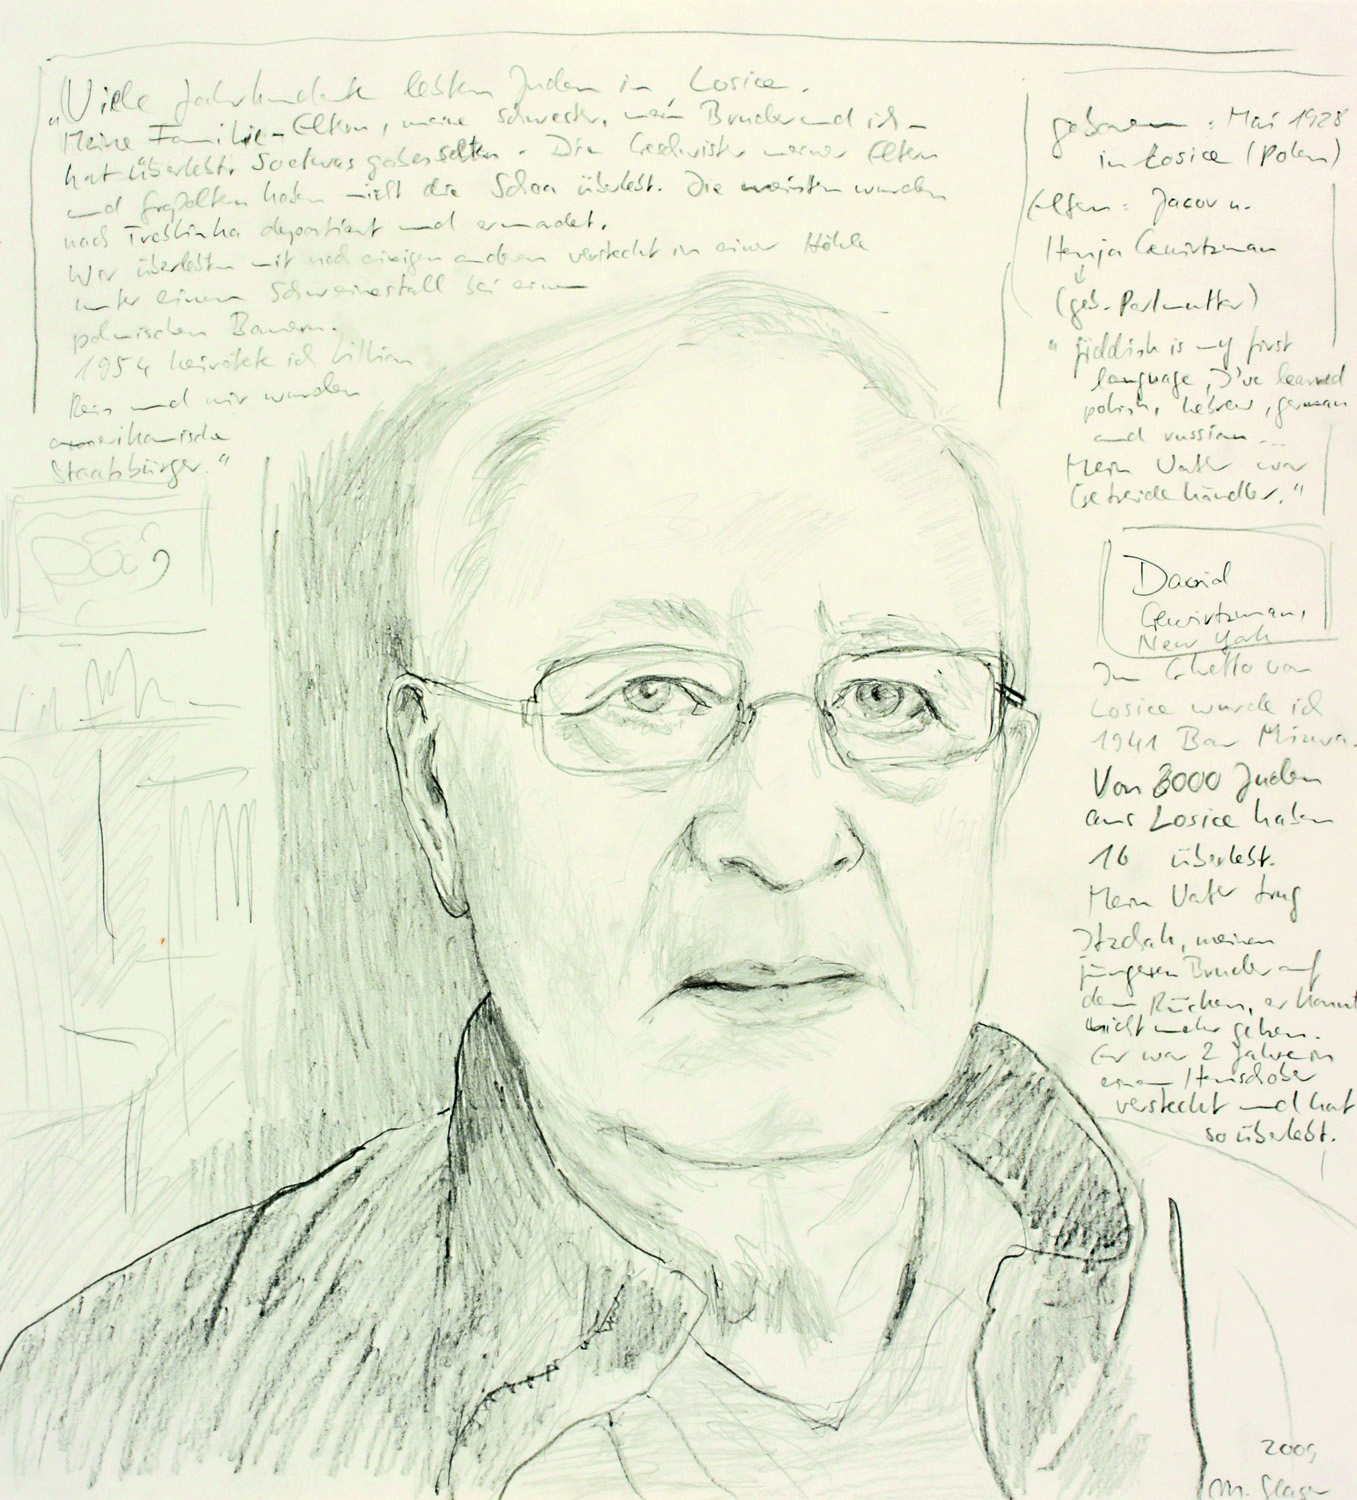 "Viele Jahrhunderte lebten Juden in Losice.
Meine Familie - Eltern, meine Schwester, mein Bruder und ich -
hat überlebt. So etwas gab es selten. Die Geschwister meiner Eltern
und Großeltern haben nicht die Schoa überlebt. Die meisten wurden
nach Treblinka deportiert und ermordet.
Wir überlebten mit noch einigen anderen versteckt in einer Höhle
unter einem Schweinestall bei einem
polnischen Bauern.
1954 heiratete ich Lillian
Reis und wir wurden
amerikanische
Staatsbürger."
geboren : Mai 1928
in Łosice (Polen)
Eltern : Jacov u.
Henja Gewirtzman
(geb. Perlmutter)
"Jiddish is my first
language, I've learned
polish, hebrew, german
and russian ...
Mein Vater war
Getreidehändler."
David
Gewirtzman,
New York
Im Ghetto von
Losice wurde ich
1941 Bar Mizwa.
Von 8000 Juden
aus Losice haben
16 überlebt.
Mein Vater trug
Itzdak, meinen
jüngeren Bruder auf
dem Rücken, er konnt
nicht mehr gehen.
Er war 2 Jahre in
einem Heuschober
versteckt und hat
so überlebt.
2009
M.